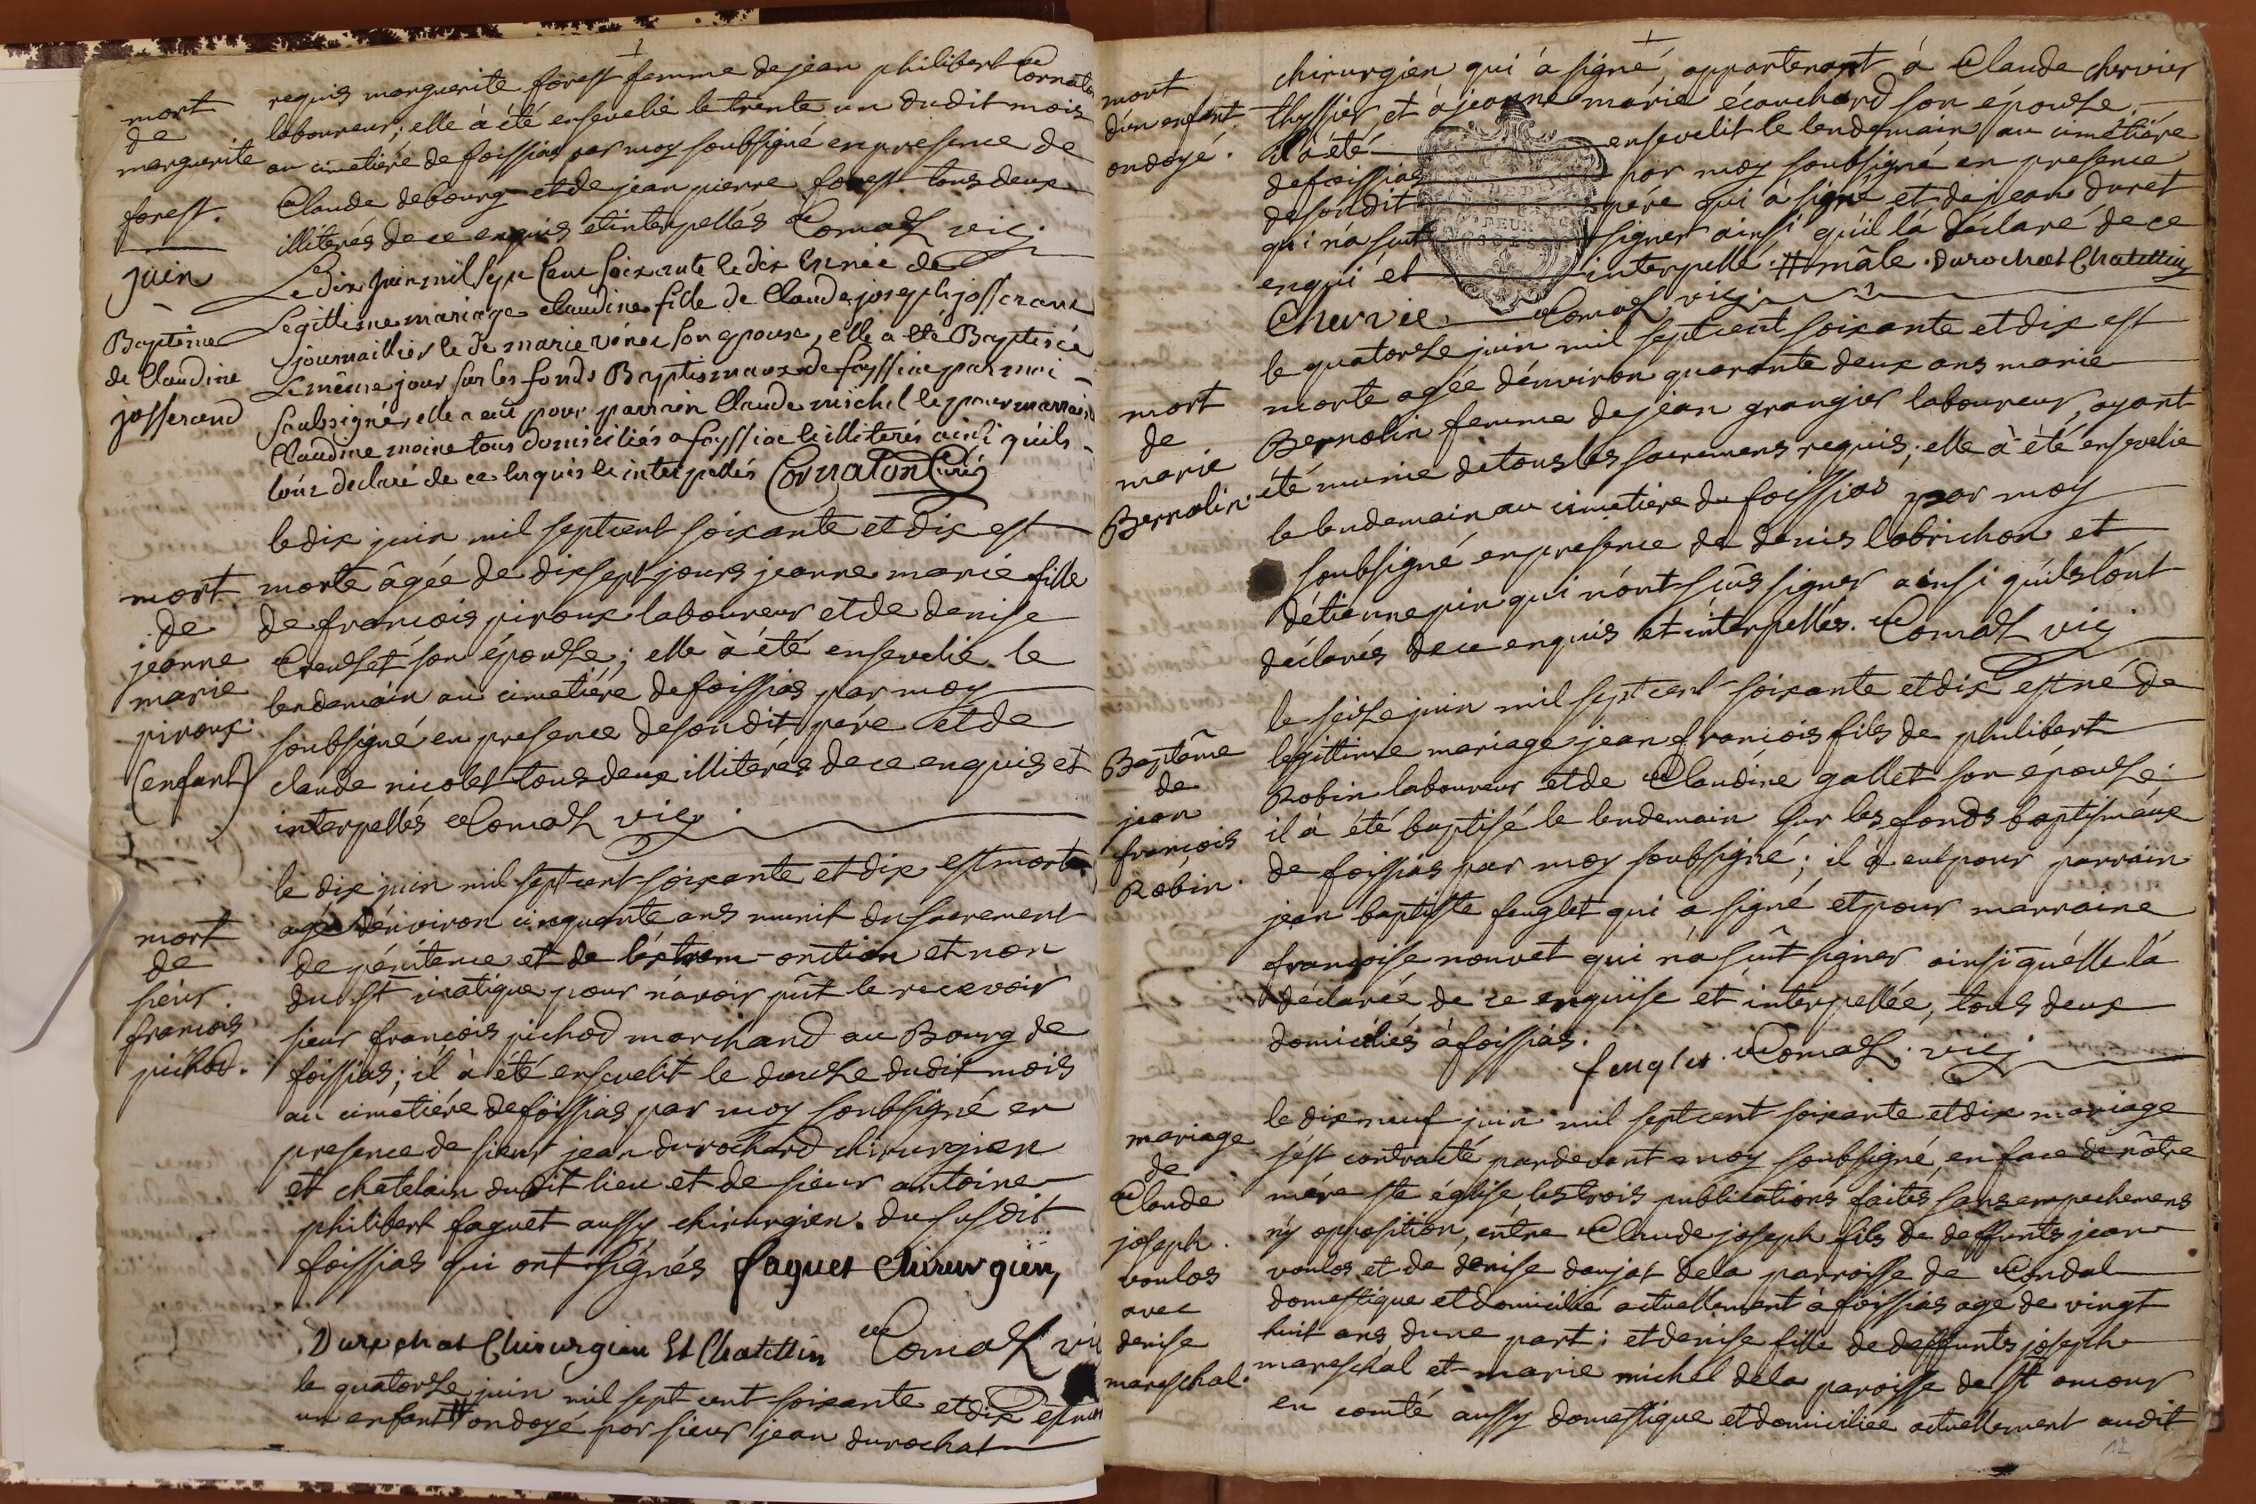 mort
de
marguerite
forest.
requis marguerite forest femme de jean philibert Cornaton
laboureur; elle à été ensevelie le trente un dudit mois
au cimetiére de foissias par moy soubsigné en presence de
Claude debourg et de jean pierre forest tous deux
illiterés de ce enquis et interpellés Comas vic̃
juin
Baptême
de Claudine
josserand
Le dix juin mil sept Cent soixante et dix est née de
Legittime mariage claudine fille de Claude joseph josserand
journaillier et de marie vénet son epouse, elle a eté Baptisée
Le même jour sur les fonds Baptismaux de foyssiat par moi
soubsigné, elle a eü pour parrain Claude michel et pour marraine
Claudine moine tous domiciliés a foyssiat et illiterés ainsi quils
l'ont declaré de ce Enquis et interpellés Cornaton Curé
mort
de
jeanne
marie
piroux.
(enfant)
le dix juin mil sept cent soixante et dix est
morte âgée de dix sept jours jeanne marie fille
de francois piroux laboureur et de denise
Creuset son épouse; elle à été ensevelie le
lendemain au cimetiére de foissias par moy
soubsigné en presence de son dit pére et de
claude nicolet tous deux illiterés de ce enquis et
interpellés Comas vic̃
mort
de
sieur
francois
pichod.
le dix juin mil sept cent soixante et dix est mort
agé d'environ cinquante ans munit du sacrement
de pénitence et de léxtrem-onction et non
du st viatique pour n'avoir pût le recevoir
sieur françois pichod marchand au Bourg de
foissias; il à été ensevelit le douze dudit mois
au cimetiére de foissias par moy soubsigné en
presence de sieur jean durochard chirurgien
et chatelain dudit lieu et de sieur antoine
philibert faguet aussy chirurgien du susdit
foissias qui ont signés faguet Chirurgien,
Durochat Chirurgien Et Chatellin Comas vic
le quatorze juin mil sept cent soixante et dix est mort
un enfant # ondoyé par sieur jean durochat
mort
d'un enfant
ondoyé.
chirurgien qui à signé, appartenant à Claude chervier
thyssier et à jeanne marie écauchard son épouse
il à été ensevelit le lendemain au cimétiére
de foissias par moy soubsigné en presence
de son dit pére qui à signé et de jean duret
qui n'a sut signer ainsi quil là déclaré de ce
enqui et interpellé. # mâle. durochat Chatellin
Chervié Comas vic̃
mort
de
marie
Bernolin.
le quatorze juin mil sept cent soixante et dix est
morte agée d'environ quarante deux ans marie
Bernolin femme de jean grangier laboureur, ayant
été munie de tous les sacremens requis; elle à été ensevelie
le lendemain au cimetiére de foissias par moy
soubsigné en presence de denis labrichon et
d'étienne pin qui n'ont sûs signer ainsi quils lónt
déclarés de ce enquis et interpellés. Comas vic̃
Baptême
de
jean
francois
Robin.
le seize juin mil sept cent soixante et dix est né de
legittime mariage jean francois fils de philibert
Robin laboureur et de Claudine gallet son épouse
il à été baptisé le lendemain sur les fonds baptismaux
de foissias par moy soubsigné; il à eut pour parrain
jean baptiste feuglet qui a signé et pour marraine
françoise nouvet qui n'à sût signer ainsi quélle là
déclarée de ce enquise et interpellée, tous deux
domiciliés à foissias.
feuglet Comas vic̃
mariage
de
Claude
joseph
voulos
avec
denise
mareschal.
le dix neuf juin mil sept cent soixante et dix mariage
s'est contracté pardevant moy soubsigné, en face de nôtre
mére ste église les trois publications faites sans empechemens
n'y opposition, entre Claude joseph fils de deffunts jean
voulos et de denise daujat de la parroisse de Condal
domestique et domicilié actuellement à foissias agé de vingt
huit ans dune part; et denise fille de deffunts joseph
mareschal et marie michel de la paroisse de st amour
en comté aussy domestique et domiciliée actuellement audit
12